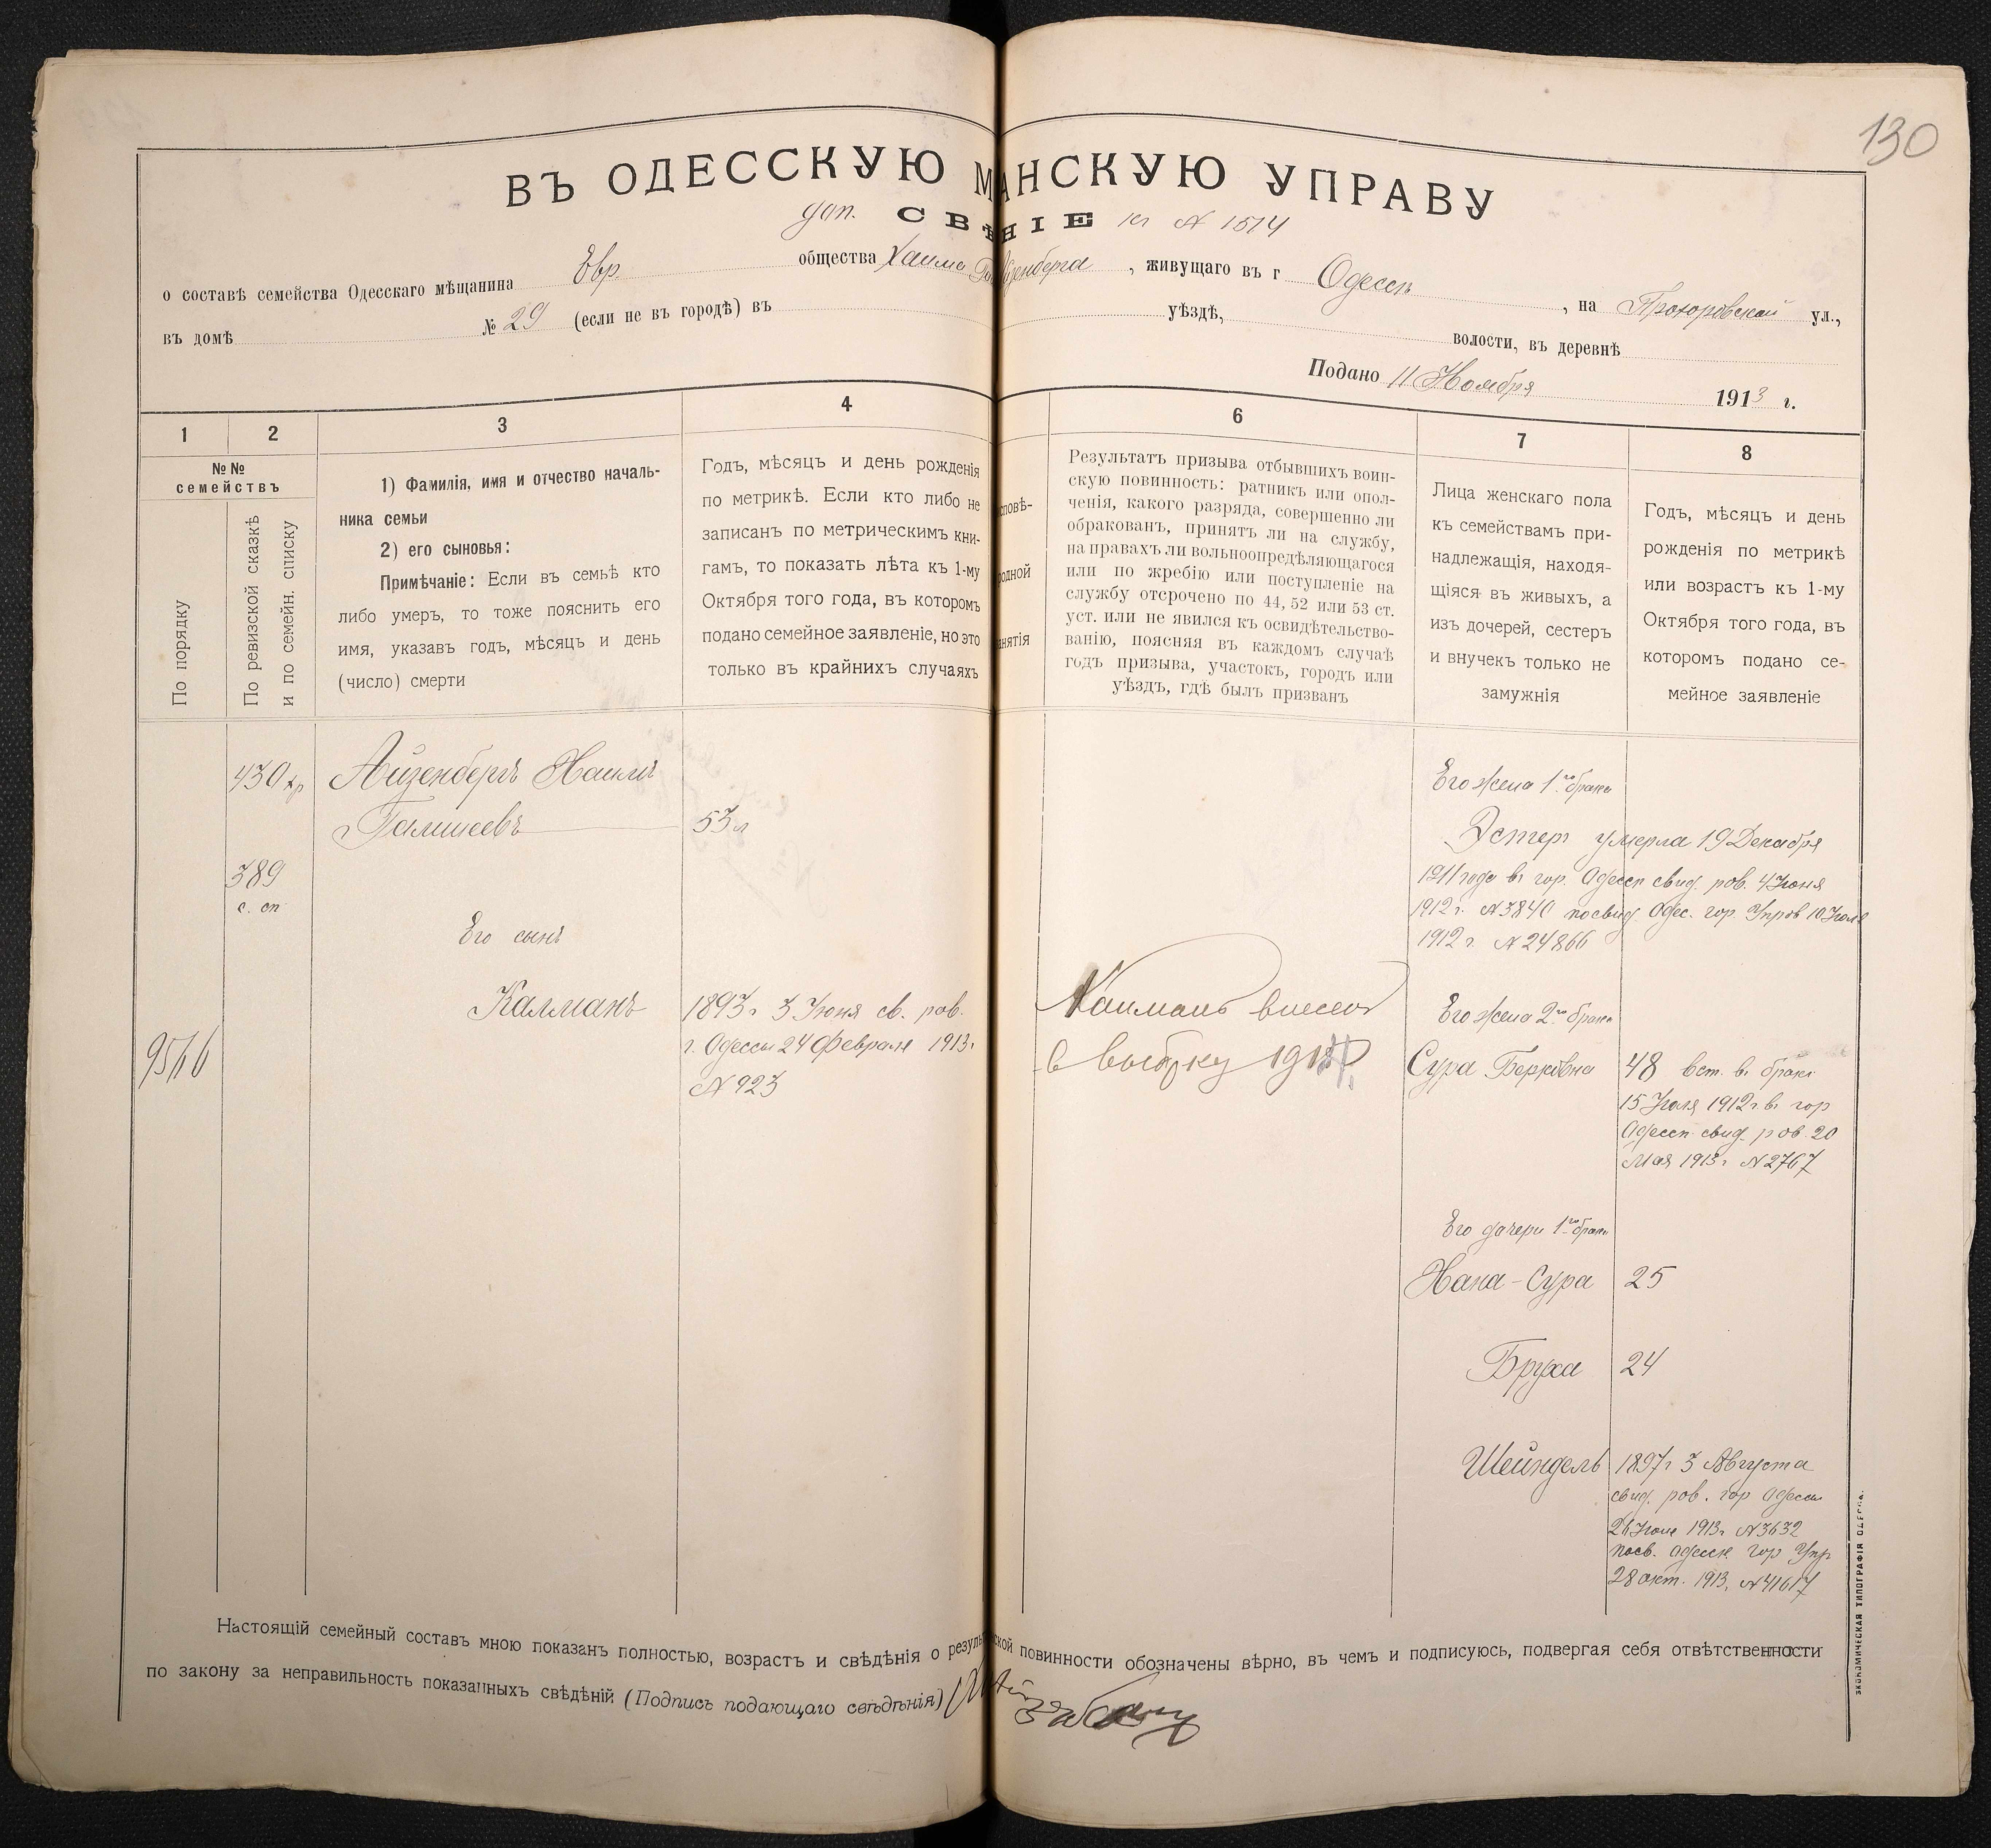 130
ВЪ ОДЕССКУЮ М АНСКУЮ УПРАВУ
доп. СВѢ НІЕ къ № 1514
о составѣ семейства Одесскаго мѣщанина Евр. общества Хаима Айзенберга, живущаго въ г Одессѣ, на Прохоровской ул.,
въ домѣ № 29 (если не въ городѣ) въ уѣздѣ, волости, въ деревнѣ
Подано 11 Ноября 1913 г.
1 2 3 4 6 7 8
№№
семействъ
По порядку
По ревизской сказкѣ
и по семейн. списку
1) Фамилія, имя и отчество началь-
ника семьи
2) его сыновья:
Примѣчаніе: Если въ семьѣ кто
либо умеръ, то тоже пояснить его
имя, указавъ годъ, мѣсяцъ и день
(число) смерти
Годъ, мѣсяцъ и день рожденія
по метрикѣ. Если кто либо не
записанъ по метрическимъ кни-
гамъ, то показать лѣта къ 1-му
Октября того года, въ которомъ
подано семейное заявленіе, но это
только въ крайнихъ случаяхъ
сповѣ-
родной
анятія
Результатъ призыва отбывшихъ воин-
скую повинность: ратникъ или опол-
ченія, какого разряда, совершенно ли
обракованъ, принятъ ли на службу,
на правахъ ли вольноопредѣляющагося
или по жребію или поступленіе на
службу отсрочено по 44, 52 или 53 ст.
уст. или не явился къ освидѣтельство-
ванію, поясняя въ каждомъ случаѣ
годъ призыва, участокъ, городъ или
уѣздъ, гдѣ былъ призванъ
Лица женскаго пола
къ семействамъ при-
надлежащія, находя-
щіяся въ живыхъ, а
изъ дочерей, сестеръ
и внучекъ только не
замужнія
Годъ, мѣсяцъ и день
рожденія по метрикѣ
или возрастъ къ 1-му
Октября того года, въ
которомъ подано се-
мейное заявленіе
430 кр
Айзенбергъ Хаимъ
53 л
389
с. сп
Его сынъ
Калманъ
1893 г 3 Іюня св. рав.
г. Одессы 24 Февраля 1913 г
№ 923
9566
в выборку
Его жена 1го брака
Эстеръ умерла 19 Декабря
1911 года въ гор. Одессѣ свид. рав. 4 Іюня
1912 г. № 3840 посвид. Одес. гор. Управ 10 Іюля
1912 г. № 24866
Его жена 2го брака
Сура Берковна
48 вст. въ бракъ
15 Іюля 1912 г. въ гор
Одессѣ свид. рав. 20
Мая 1913 г № 2767
Его дочери 1го брака
Хана-Сура 25
Бруха 24
Шейндель
1897 г 3 Августа
свид. рав. гор Одессы
1913 г № 3632
посв. Одесск. гор Упр
28 окт. 1913. № 41617
Настоящій семейный составъ мною показанъ полностью, возрастъ и свѣдѣнія о резуль ской повинности обозначены вѣрно, въ чемъ и подписуюсь, подвергая себя отвѣтственности
по закону за неправильность показанныхъ свѣдѣній (Подпись подающаго свѣдѣнія)
ЭКОНОМИЧЕСКАЯ ТИПОГРАФІЯ ОДЕССА.